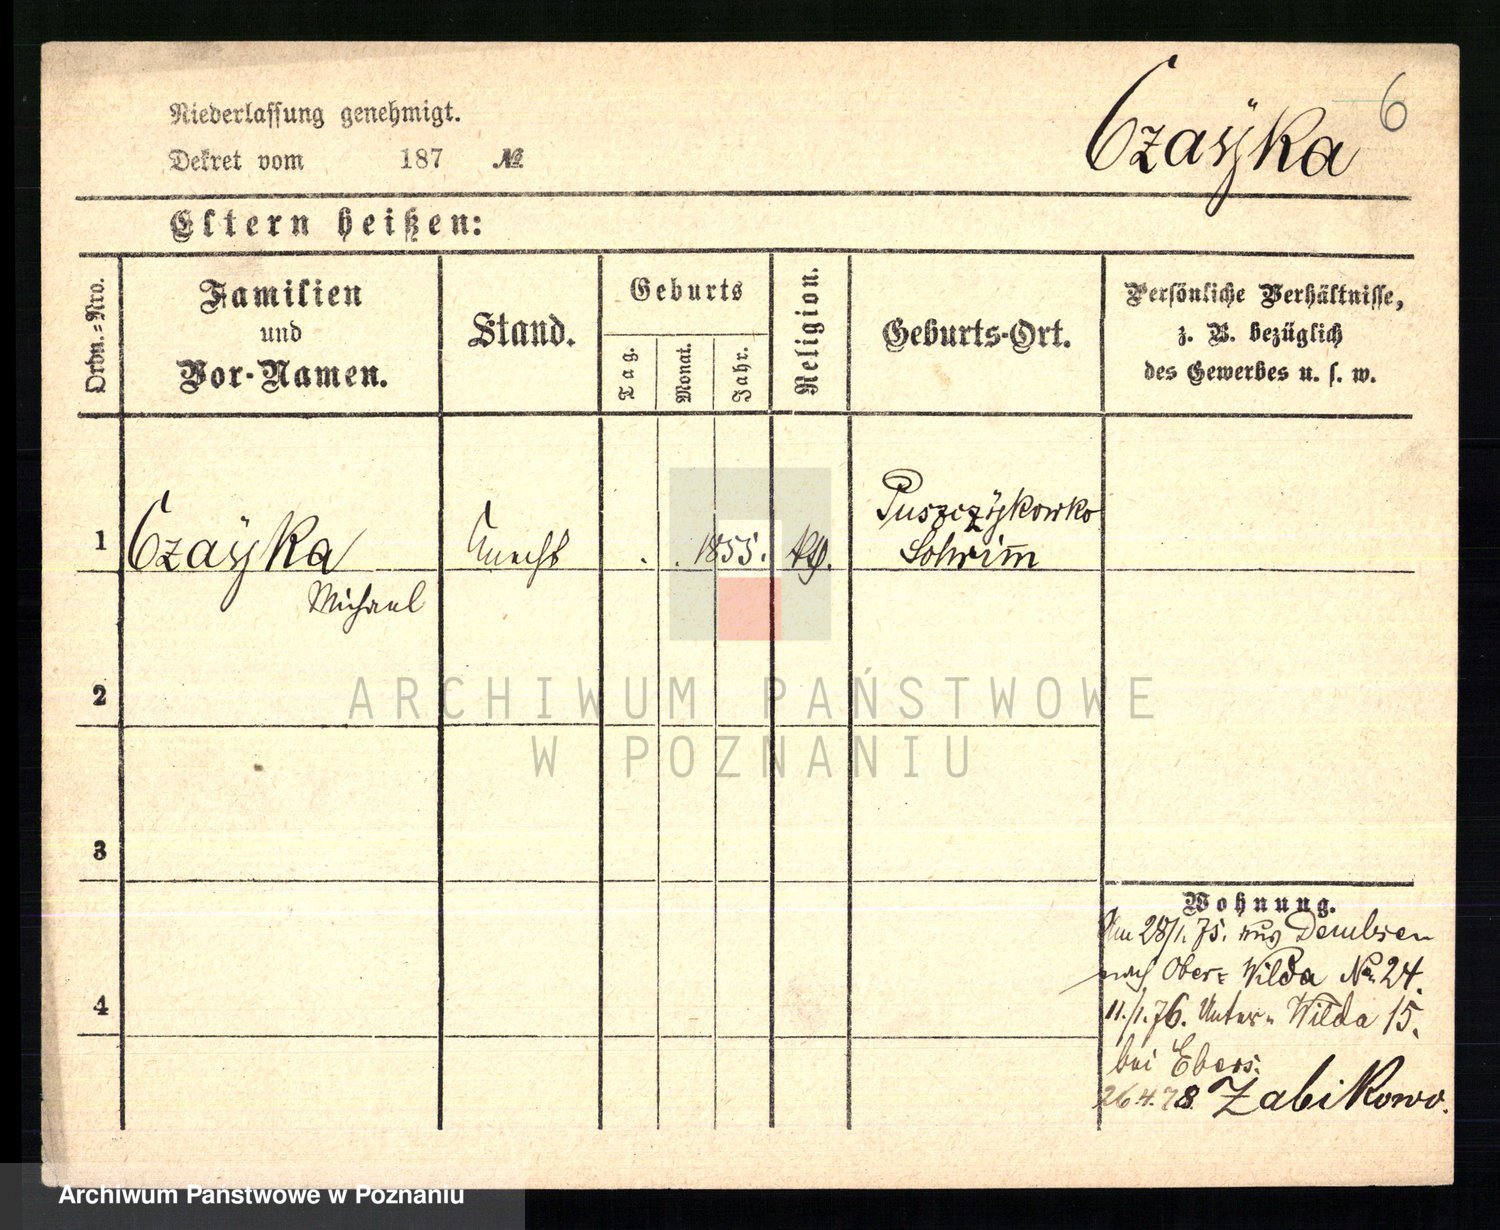 6
Czaÿka
Niederlassung genehmigt.
Dekret vom 187 №
Eltern heißen:
Ordn.=Nro.
Familien
und
Vor-Namen.
Stand.
Geburts
Tag.
Monat.
Jahr.
Religion.
Geburts-Ort.
Persönliche Verhältnisse,
z. B. bezüglich
des Gewerbes u. s. w.
1
Czaÿka
Michael
Knecht
. . 1855.
Puszczÿkowko
Schrim̅
2
3
4
Wohnung.
Am 28/1.75. aus Dembsen
nach Ober= Wilda No 24.
11./1.76. Unter= Wilda 15.
bei Ebers.
26.4.78. Zabikowo.
ARCHIWUM PAŃSTWOWE
W POZNANIU
Archiwum Państwowe w Poznaniu